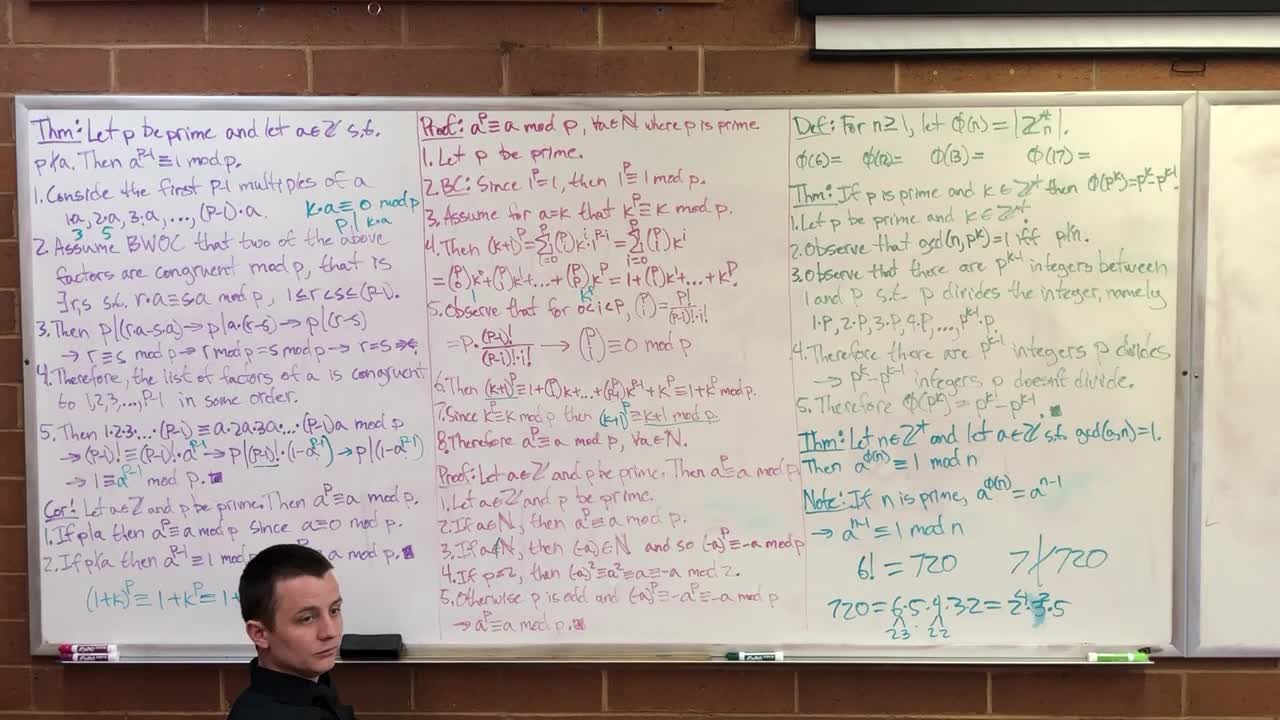 Thm: Let p be prime and let a∈ℤ s.t.
p∤a. Then a^(p-1) ≡ 1 mod p.
1. Conside the first p-1 multiples of a
1·a, 2·a, 3·a, ..., (p-1)·a.
3 5
k·a ≡ 0 mod p
p | k·a
2. Assume BWOC that two of the above
factors are congruent mod p, that is
∃r,s s.t. r·a ≡ s·a mod p, 1≤r<s≤(p-1).
3. Then p|(r·a-s·a) → p|a·(r-s) → p|(r-s)
→ r ≡ s mod p → r mod p = s mod p → r=s ⇒⇐
4. Therefore, the list of factors of a is congruent
to 1,2,3,...,p-1 in some order.
5. Then 1·2·3·...·(p-1) ≡ a·2a·3a·...·(p-1)a mod p
→ (p-1)! ≡ (p-1)!·a^(p-1) → p|(p-1)!·(1-a^(p-1)) → p|(1-a^(p-1))
→ 1 ≡ a^(p-1) mod p. ■
Cor: Let a∈ℤ and p be prime. Then a^p ≡ a mod p.
1. If p|a then a^p ≡ a mod p since a ≡ 0 mod p.
2. If p∤a then a^(p-1) ≡ 1 mod a mod p. ■
(1+k)^p ≡ 1+k^p ≡ 1+
Proof: a^p ≡ a mod p, ∀a∈ℕ where p is prime
1. Let p be prime.
2. BC: Since 1^p=1, then 1^p ≡ 1 mod p.
3. Assume for a=k that k^p ≡ k mod p.
4. Then (k+1)^p = Σ_{i=0}^{p} (p i) k^i·1^(p-i) = Σ_{i=0}^{p} (p i) k^i
= (p 0)k^0 + (p 1)k^1 + ... + (p p)k^p = 1 + (p 1)k^1 + ... + k^p.
1 k^p
5. Observe that for 0<i<p, (p i) = p!/((p-i)!·i!)
= p·(p-1)!/((p-i)!·i!) → (p i) ≡ 0 mod p
6. Then (k+1)^p ≡ 1 + (p 1)k + ... + (p p-1)k^(p-1) + k^p ≡ 1+k^p mod p.
7. Since k^p ≡ k mod p then (k+1)^p ≡ k+1 mod p.
8. Therefore a^p ≡ a mod p, ∀a∈ℕ.
Proof: Let a∈ℤ and p be prime. Then a^p ≡ a mod p
1. Let a∈ℤ and p be prime.
2. If a∈ℕ, then a^p ≡ a mod p.
3. If a∉ℕ, then (-a)∈ℕ and so (-a)^p ≡ -a mod p
4. If p=2, then (-a)^2 ≡ a^2 ≡ a ≡ -a mod 2.
5. Otherwise p is odd and (-a)^p ≡ -a^p ≡ -a mod p
→ a^p ≡ a mod p. ■
Def: For n≥1, let ϕ(n) = |ℤ_n^*|.
ϕ(6)= ϕ(12)= ϕ(13)= ϕ(17)=
Thm: If p is prime and k∈ℤ^+ then ϕ(p^k)=p^k-p^(k-1).
1. Let p be prime and k∈ℤ^+.
2. Observe that gcd(n,p^k)=1 iff p∤n.
3. Observe that there are p^(k-1) integers between
1 and p s.t. p divides the integer, namely
1·p, 2·p, 3·p, 4·p, ..., p^(k-1)·p.
4. Therefore there are p^(k-1) integers p divides
→ p^k-p^(k-1) integers p doesn't divide.
5. Therefore ϕ(p^k) = p^k-p^(k-1). ■
Thm: Let n∈ℤ^+ and let a∈ℤ s.t. gcd(a,n)=1.
Then a^ϕ(n) ≡ 1 mod n
Note: If n is prime, a^ϕ(n) = a^(n-1)
→ a^(n-1) ≡ 1 mod n
6! = 720 7∤720
720 = 6·5·4·3·2 = 2^4·3^2·5
2 3 2 2
EXPO
EXPO